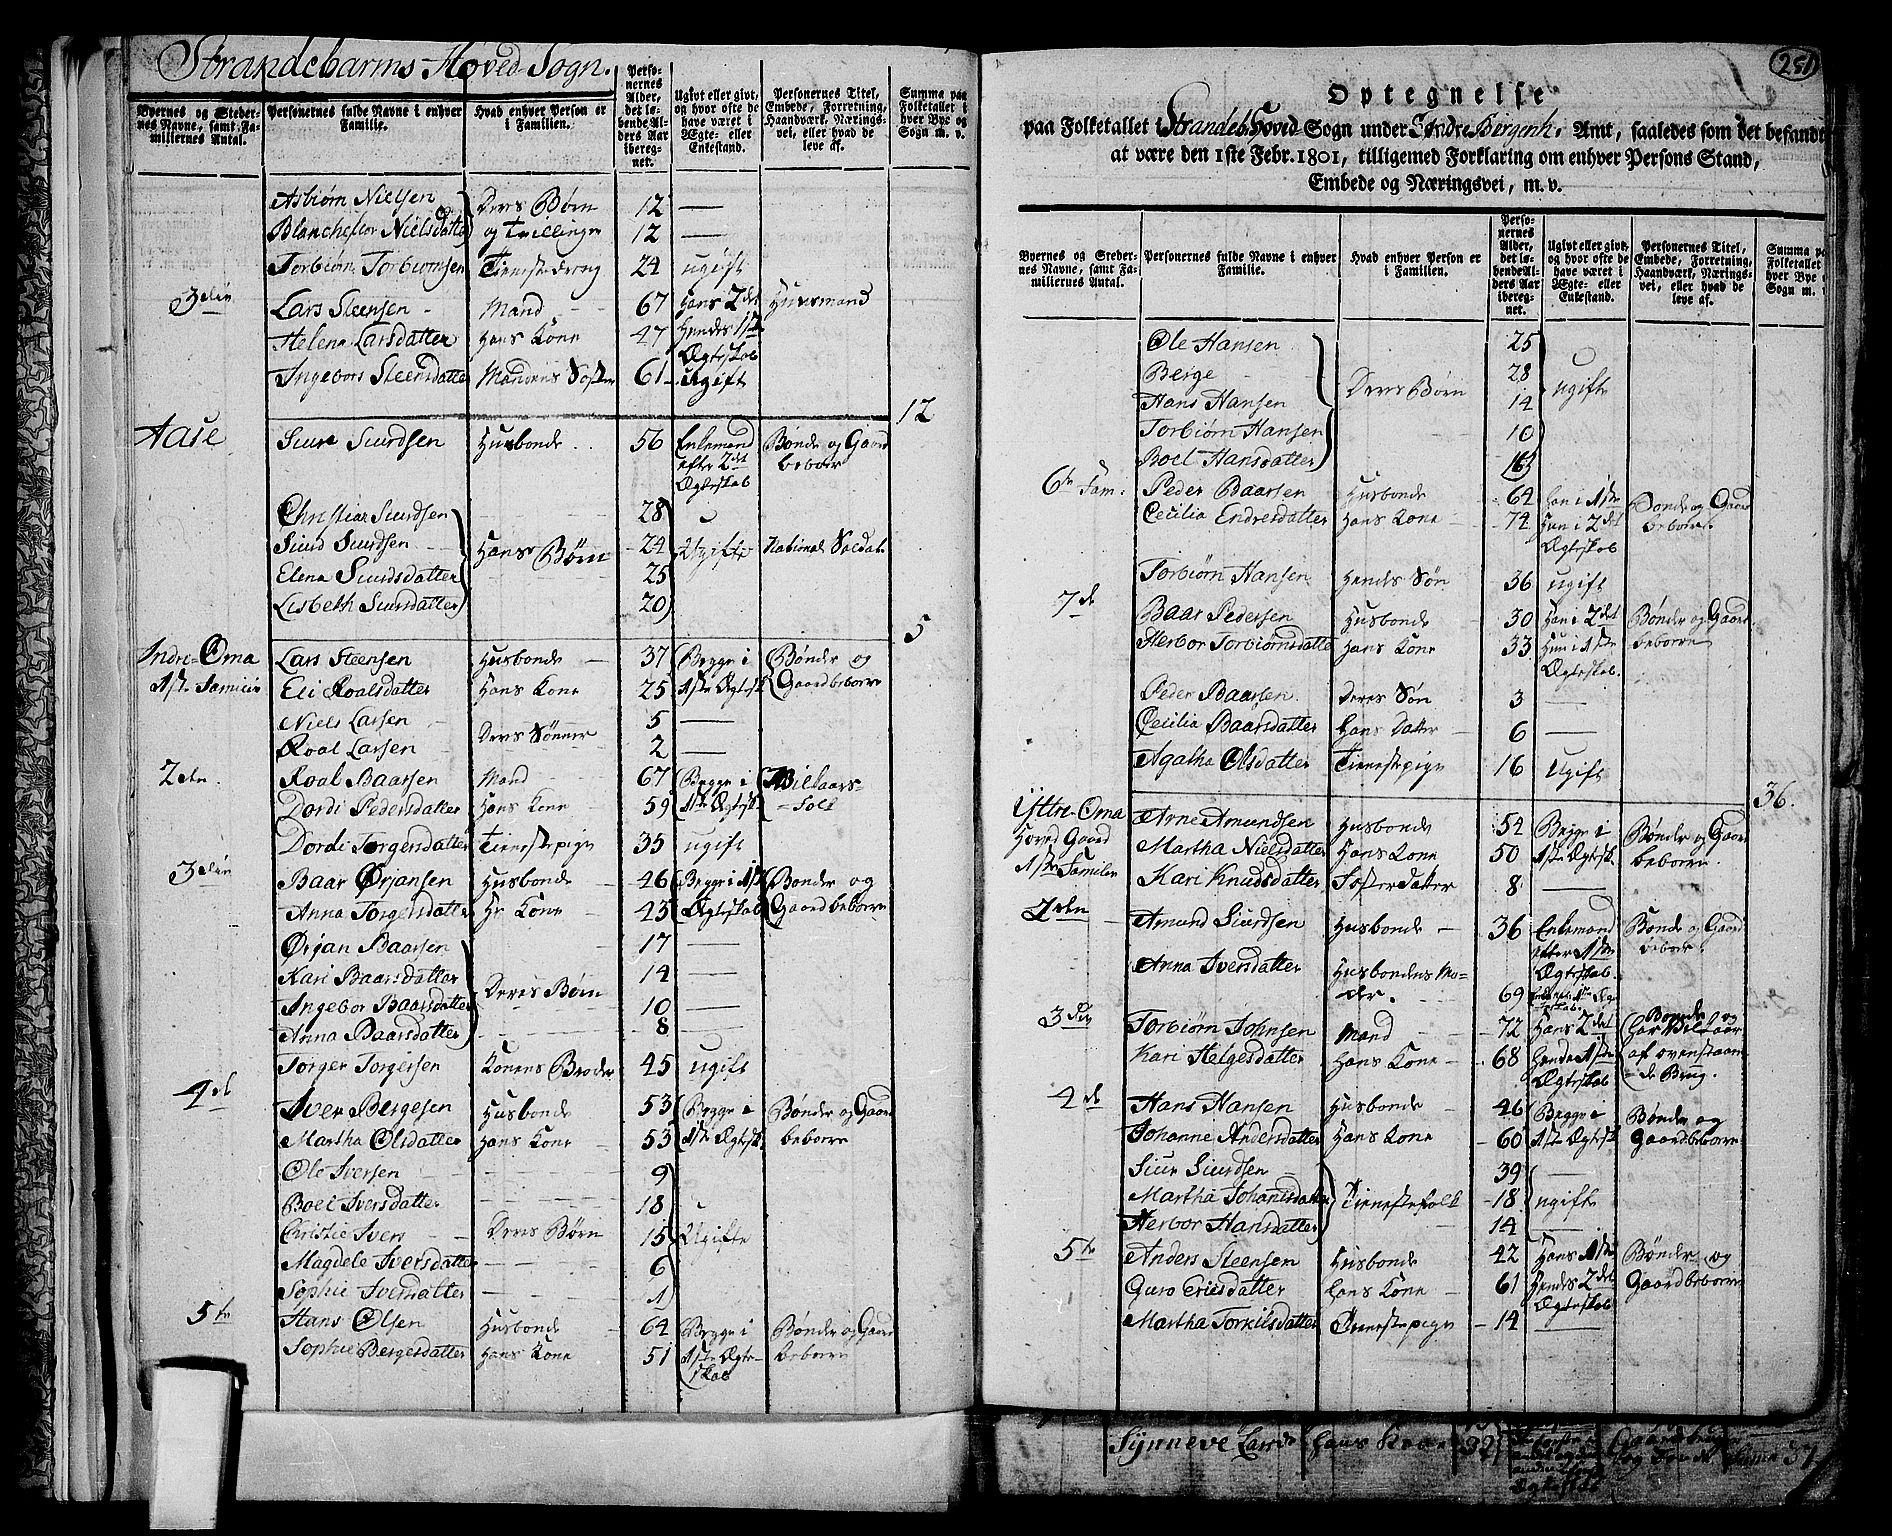 Strandebarms Hoved Sogn.
Byernes og Stedernes Navne, samt Familiernes Antal.
Personernes fulde Navne i enhver Familie.
Hvad enhver Person er i Familien.
Personernes Alder, det løbende Alders Aar iberegnet.
Ugivt eller givt, og hvor ofte de have været i Ægte- eller Enkestand.
Personernes Titel, Embede, Forretning, Haandværk, Næringsvei, eller hvad de leve af.
Summa paa Folketallet i hver Bye og Sogn m. v.
Asbiørn Nielsen Deres Børn 12 —
Blancheflor Nielsdatter og tvillinger 12 —
Torbiørn Torbiornsen Tienestedreng 24 ugift
3die Lars Steensen Mand 67 Hans 2det Huusmand
Helena Larsdatter Hans Kone 47 Hendes 1ste Ægteskab
Ingebor Steensdatter Mandens Søster 61 ugift
12
Aase Siur Siurdsen Husbonde 56 Enkemand efter 2det Ægteskab Bonde og Gaard beboer
Christian Siurdsen 28
Siurd Siurdsen Hans Børn 24 Ugifte National Soldat
Elena Siurdsdatter 25
Lisbeth Siursdatter 20
5
Indre-Oma Lars Steensen Husbonde 37 Begge i Bønder og
1ste Familie Eli Roalsdatter Hans Kone 25 1ste Ægtesk. Gaardbeboere
Niels Larsen Deres Sønner 5 —
Roal Larsen 2 —
2den Roal Baarsen Mand 67 Begge i Vilkaars-
Dordi Pedersdatter Hans Kone 59 1ste Ægtesk. Folk
Dordi Torgersdatter Tienestepige 35 ugift
3die Baar Ørjansen Husbonde 46 Begge i 1ste Bønder og
Anna Torgersdatter Hs Kone 45 Ægteskab Gaardbeboere
Ørjan Baarsen 17 —
Kari Baarsdatter Deres Børn 14 —
Ingebor Baarsdatter 10 —
Anna Baarsdatter 8 —
Torger Torgersen Konens Broder 45 ugift
4de Iver Bergesen Husbonde 53 Begge i Bønder og Gaard
Martha Olsdatter Hans Kone 53 1ste Ægtesk. beboere
Ole Iversen 9
Boel Iversdatter 18
Christie Ivers Deres Børn 15 Ugifte
Magdele Iversdatter 6
Sophie Iversdatter 1
5te Hans Olsen Husbonde 64 Begge i Bønder og Gaard
Sophie Bergesdatter Hans Kone 51 1ste Ægteskab beboere
251
Optegnelse
paa Folketallet i Strandeb. Hoved Sogn under Søndre Bergenh. Amt, saaledes som det befandtes
at være den 1ste Febr. 1801, tilligemed Forklaring om enhver Persons Stand,
Embede og Næringsvei, m. v.
Byernes og Stedernes Navne, samt Familiernes Antal.
Personernes fulde Navne i enhver Familie.
Hvad enhver Person er i Familien.
Personernes Alder, det løbende Alders Aar iberegnet.
Ugivt eller givt, og hvor ofte de have været i Ægte- eller Enkestand.
Personernes Titel, Embede, Forretning, Haandværk, Næringsvei, eller hvad de leve af.
Summa paa Folketallet i hver Bye og Sogn m. v.
Ole Hansen 25
Berge 28
Hans Hansen Deres Børn 14 ugifte
Torbiørn Hansen 10
Boel Hansdatter
6te Fam. Peder Baarsen Husbonde 64 Han i 1ste Bonde og Gaard
Cecilia Endresdatter Hans Kone 74 Hun i 2det Ægteskab beboere
Torbiørn Hansen Hendes Søn 36 ugift
7de Baar Pedersen Husbonde 30 Han i 2det Bønder og Gaard
Herbor Torbiørnsdatter Hans Kone 33 Hun i 1ste Ægteskab. beboere
Peder Baarsen Deres Søn 3 —
Cecilia Baarsdatter Hans Datter 6 —
Agatha Olsdatter Tienestepige 16 Ugift
36.
Yttre-Oma Arne Amundsen Husbonde 54 Begge i Bønder og Gaard
Hoved Gaard Martha Nielsdatter Hans Kone 50 1ste Ægtesk. beboere.
1ste Familie Kari Knudsdatter Søsterdatter 8 —
2den Amund Siurdsen Husbonde 36 Enkemand efter 1ste Ægteskab. Bonde og Gaard beboer.
Anna Iversdatter Husbondens Moder. 69
3die Torbiørn Johnsen Mand 72 Hans 2det
Kari Helgesdatter Hans Kone 68 Hendes 1ste Ægteskab af ovenstaaende Brug.
4de Hans Hansen Husbonde 46 Begge i Bønder og
Johanne Andersdatter Hans Kone 60 1ste Ægtesk. Gaardbeboere
Siur Siurdsen 39 —
Martha Johannesdatter Tienestefolk 18 ugifte
Herbor Hansdatter 14 —
5te Anders Steensen Husbonde 42 Hans 1ste Bønder og
Guro Ericsdatter Hans Kone 61 Hendes 2det Ægteskab Gaardbeboere
Martha Torkilsdatter Tienestepige 14 —
Synneve Larsd Hans Kone 32 Summa 37